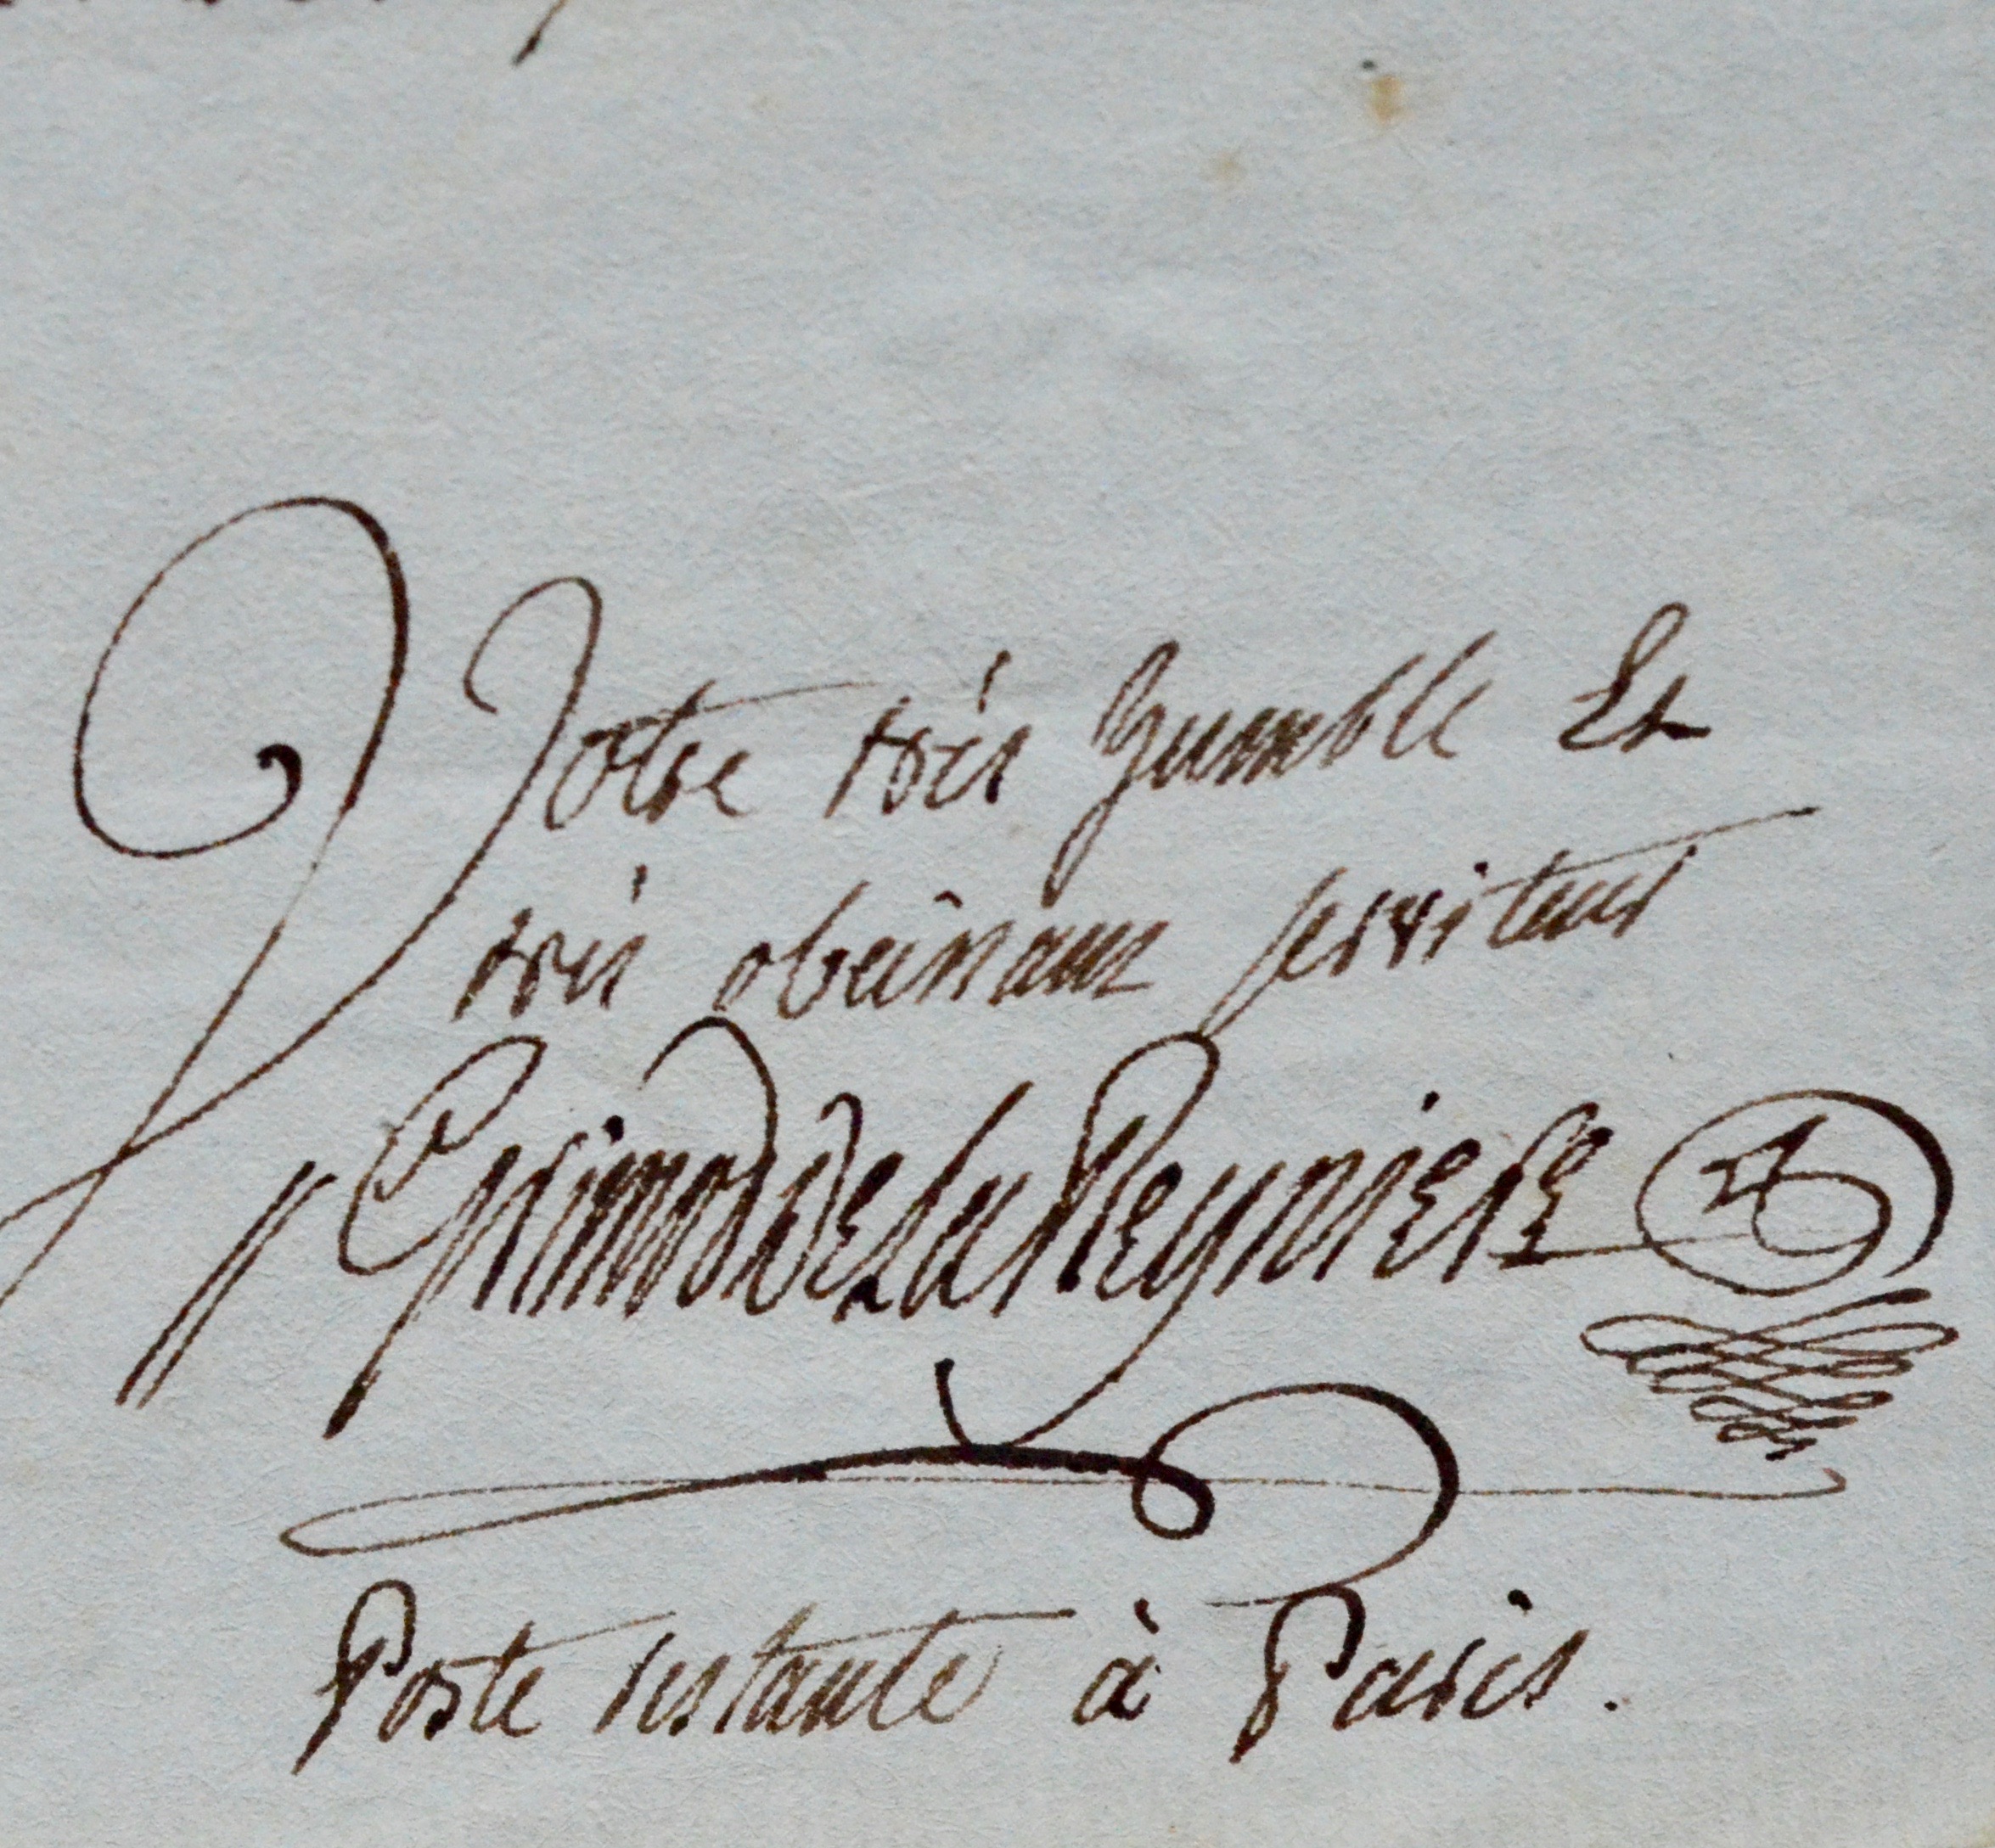 Votre très humble Et
très obeïssant serviteur
Grimod De La Reyniere
Poste restante à Paris.